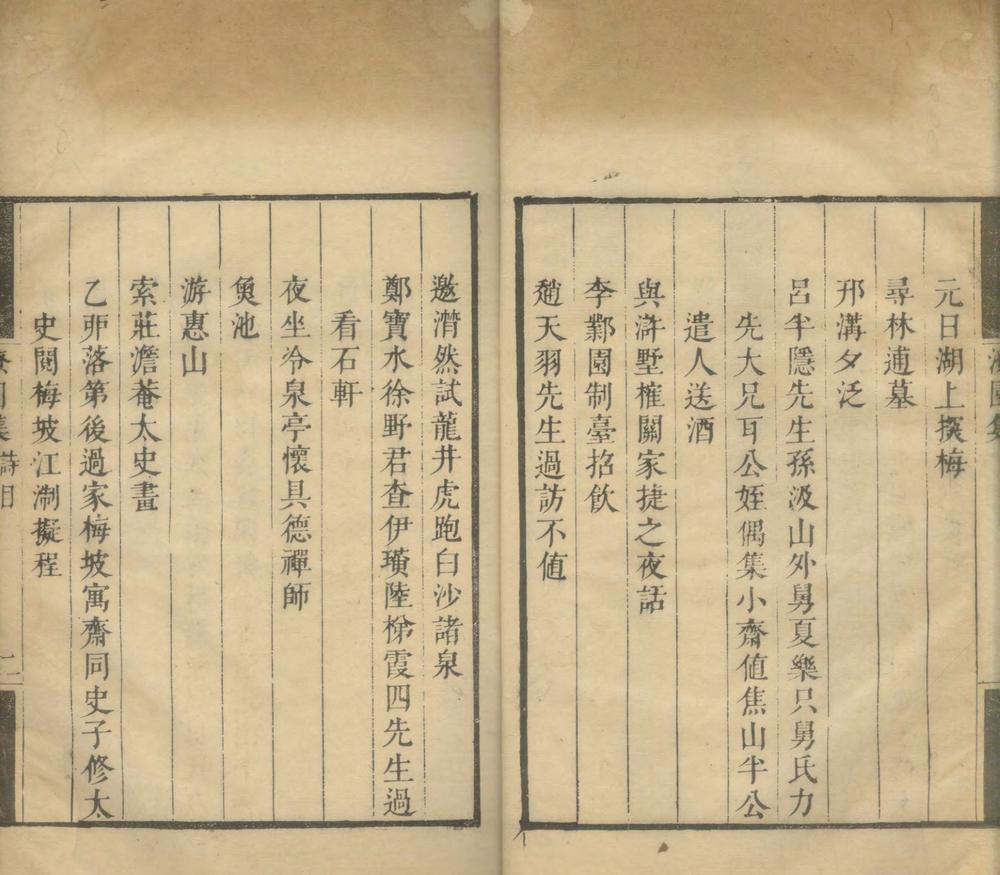 元日湖上探梅
尋林逋墓
邗溝夕泛
呂半隱先生孫汲山外舅夏樂只舅氏力
先大兄耳公姪偶集小齋値焦山半公
遣人送酒
與滸墅榷關家捷之夜話
李鄴園制臺招飮
趙天羽先生過訪不値
邀渭然試龍井虎跑白沙諸泉
鄭寶水徐野君查伊璜陸梯霞四先生過
看石軒
夜坐冷泉亭懷具德禪師
魚池
游惠山
索莊澹菴太史畫
乙卯落第後過家梅坡寓齋同史子修太
史閱梅坡江淛擬程
集詩目
二